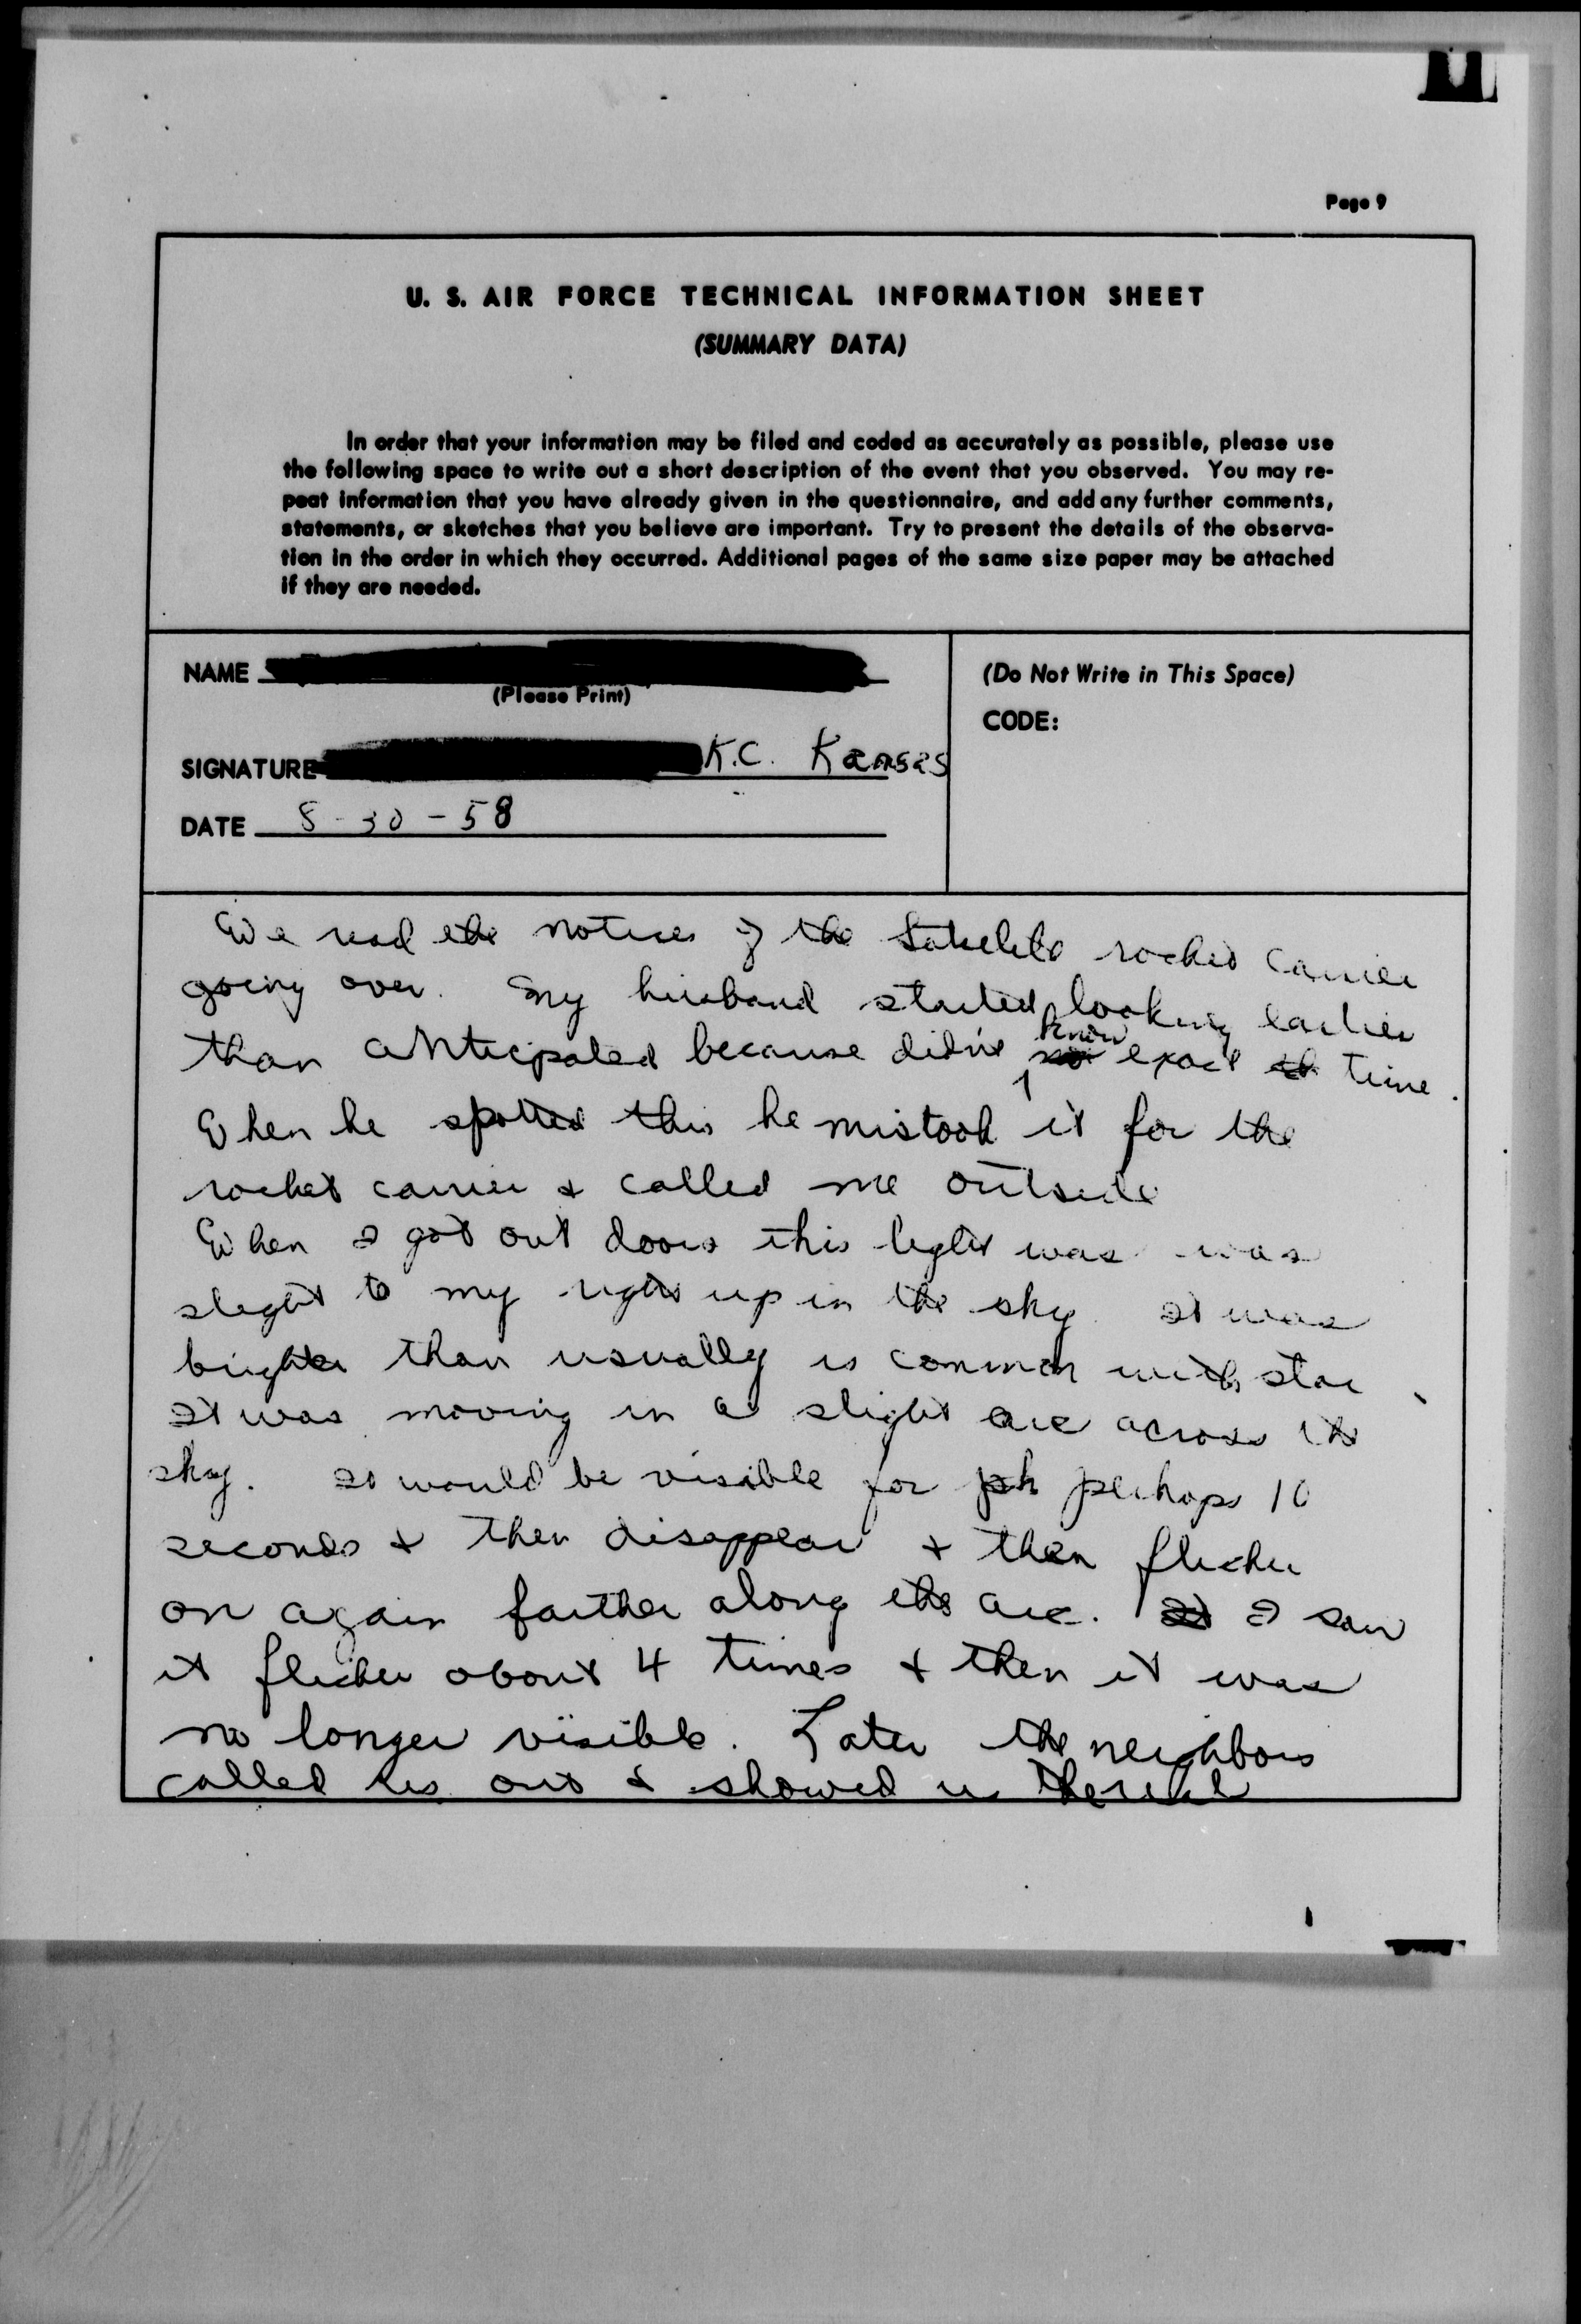 Page 9
U. S. AIR FORCE TECHNICAL INFORMATION SHEET
(SUMMARY DATA)
In order that your information may be filed and coded as accurately as possible, please use
the following space to write out a short description of the event that you observed. You may re-
peat information that you have already given in the questionnaire, and add any further comments,
statements, or sketches that you believe are important. Try to present the details of the observa-
tion in the order in which they occurred. Additional pages of the same size paper may be attached
if they are needed.
NAME
(Please Print)
SIGNATURE K.C. Kansas
DATE 8-30-58
(Do Not Write in This Space)
CODE:
We read the notices of the Satelite rocket carrier
going over. My husband started looking earlier
than anticipated because didn't know exact time.
When he spotted this he mistook it for the
rocket carrier & called me outside
When I got out doors this light was was
slight to my right up in the sky. It was
brighter than usually is common with star.
It was moving in a slight arc across the
sky. It would be visible for ph perhaps 10
seconds & then disappear & then flicker
on again farther along the arc. It I saw
it flicker about 4 times & then it was
no longer visible. Later the neighbors
called us out & showed us the real